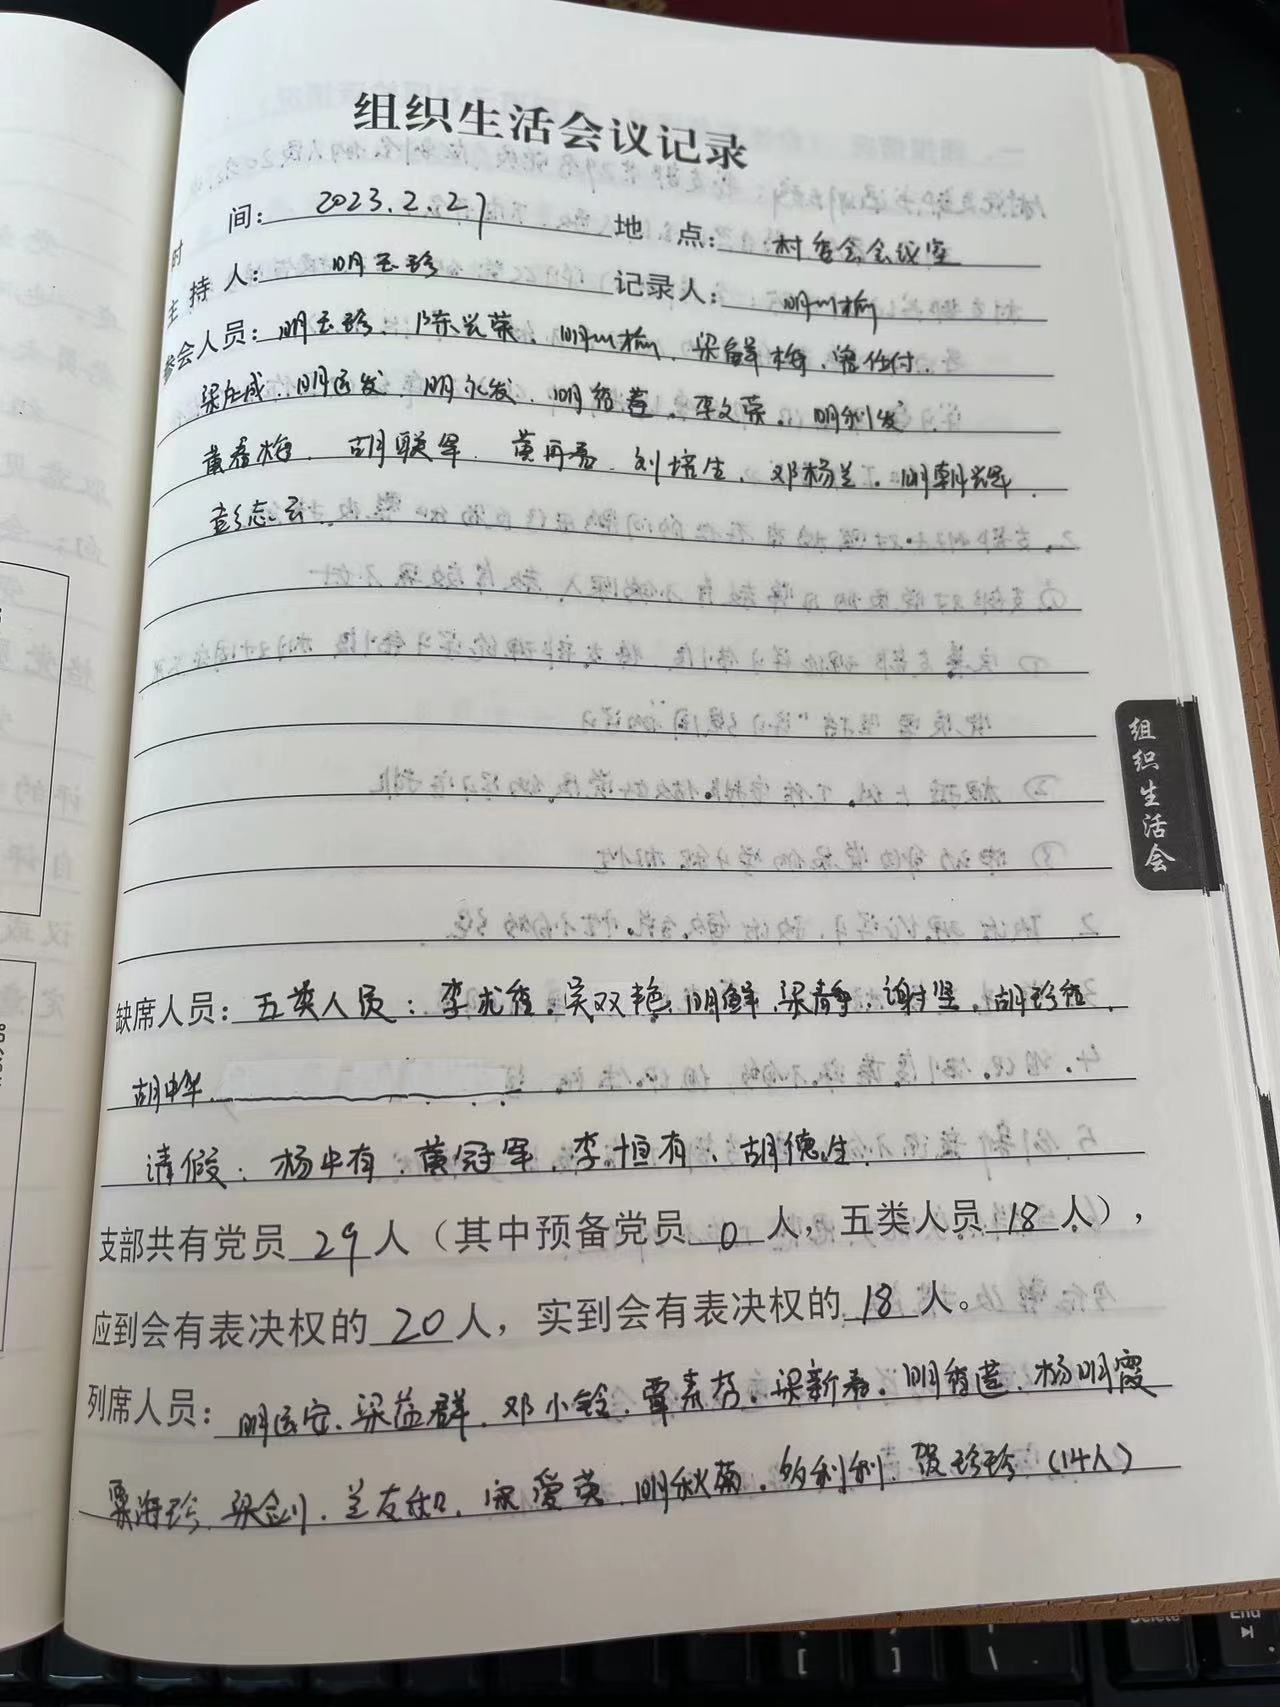 组织生活会议记录
时 间: 2023.2.27 地 点: 村委会会议室
主持人: 明玉珍 记录人: 明小榆
参会人员: 明玉珍、陈兴荣、明小榆、梁鲜梅、曾仕付、
梁左成、明远发、明永发、明程莲、李文荣、明利发
黄春梅、胡联军、黄再秀、刘培生、邓杨兰、明朝辉、
彭志云、
组织生活会
缺席人员: 五类人员: 李龙程、吴双艳、明鲜、梁静、谢坚、胡珍程、
胡中华、
请假: 杨中有、黄冠军、李恒有、胡德生、
支部共有党员 29 人（其中预备党员 0 人，五类人员 18 人），
应到会有表决权的 20 人，实到会有表决权的 18 人。
列席人员: 明远安、梁益群、邓小铃、覃素芳、梁新春、明程莲、杨明霞
粟海珍、梁金川、兰友和、宋爱英、明秋菊、利利、贺珍珍（14人）
Delete
End